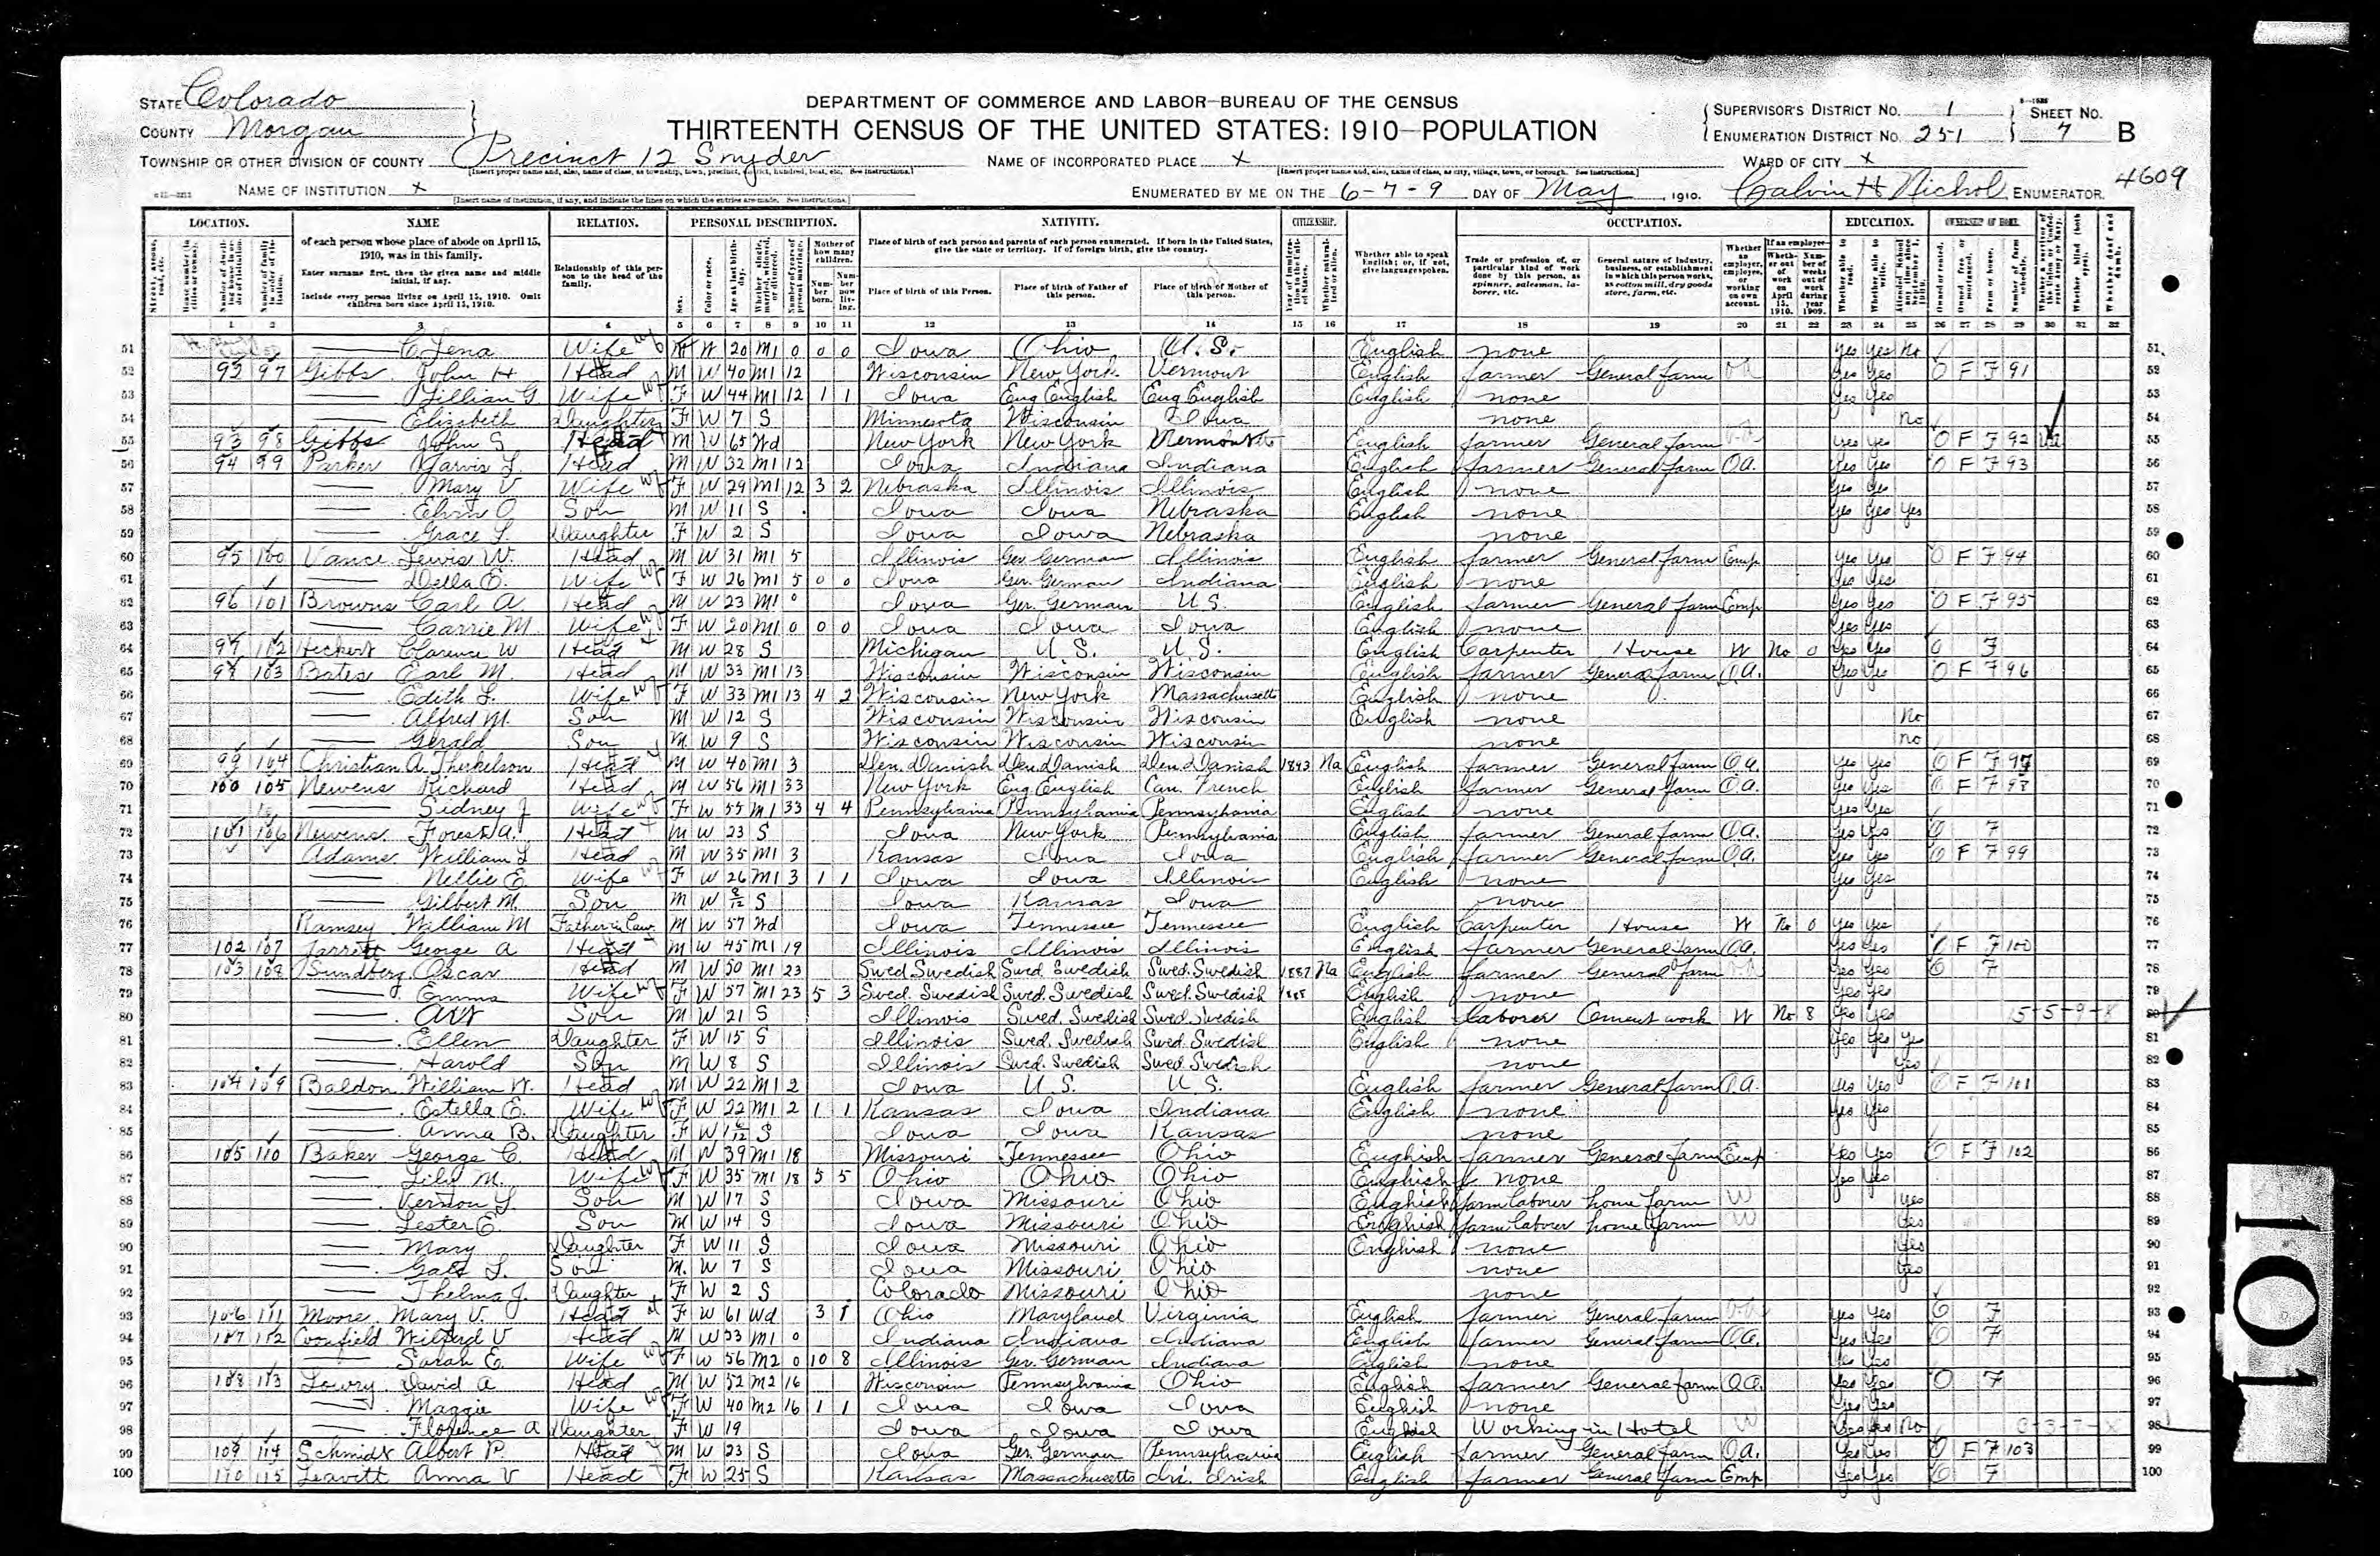 STATE Colorado
COUNTY Morgan
DEPARTMENT OF COMMERCE AND LABOR—BUREAU OF THE CENSUS
THIRTEENTH CENSUS OF THE UNITED STATES: 1910—POPULATION
SUPERVISOR'S DISTRICT No. 1 SHEET No.
ENUMERATION DISTRICT No. 251 7 B
TOWNSHIP OR OTHER DIVISION OF COUNTY Precinct 12 Snyder NAME OF INCORPORATED PLACE x WARD OF CITY x
NAME OF INSTITUTION x ENUMERATED BY ME ON THE 6-7-9 DAY OF May, 1910. Calvin H Nichol, ENUMERATOR. 4609
LOCATION. NAME RELATION. PERSONAL DESCRIPTION. NATIVITY. CITIZENSHIP. OCCUPATION. EDUCATION. OWNERSHIP OF HOME.
of each person whose place of abode on April 15, 1910, was in this family.
Enter surname first, then the given name and middle initial, if any.
Include every person living on April 15, 1910. Omit children born since April 15, 1910.
Relationship of this person to the head of the family.
Place of birth of each person and parents of each person enumerated. If born in the United States, give the state or territory. If of foreign birth, give the country.
Place of birth of this Person. Place of birth of Father of this person. Place of birth of Mother of this person.
Whether able to speak English; or, if not, give language spoken.
1 2 3 4 5 6 7 8 9 10 11 12 13 14 15 16 17 18 19 20 21 22 23 24 25 26 27 28 29 30 31 32
51 — C Lena Wife W 20 M1 0 0 0 Iowa Ohio U. S. English none Yes Yes No 51
52 92 97 Gibbs John H Head M W 40 M1 12 Wisconsin New York Vermont English farmer General farm Yes Yes O F F 91 52
53 — Lillian G Wife F W 44 M1 12 1 1 Iowa Eng English Eng English English none Yes Yes 53
54 — Elizabeth Daughter F W 7 S Minnesota Wisconsin Iowa none No 54
55 93 98 Gibbs John S Head M W 65 Wd New York New York Vermont English farmer General farm Yes Yes O F F 92 55
56 94 99 Parker Jarvis L Head M W 32 M1 12 Iowa Indiana Indiana English farmer General farm O.A. Yes Yes O F F 93 56
57 — Mary V Wife F W 29 M1 12 3 2 Nebraska Illinois Illinois English none Yes Yes 57
58 — Elvin O Son M W 11 S Iowa Iowa Nebraska English none Yes Yes Yes 58
59 — Grace L. Daughter F W 2 S Iowa Iowa Nebraska none 59
60 95 100 Vance Lewis W. Head M W 31 M1 5 Illinois Ger German Illinois English farmer General farm Emp Yes Yes O F F 94 60
61 — Della E. Wife F W 26 M1 5 0 0 Iowa Ger. German Indiana English none Yes Yes 61
62 96 101 Browns Carl A. Head M W 23 M1 0 Iowa Ger. German U.S. English farmer General farm Emp Yes Yes O F F 95 62
63 — Carrie M. Wife F W 20 M1 0 0 0 Iowa Iowa Iowa English none Yes Yes 63
64 97 102 Heckert Clarence W Head M W 28 S Michigan U.S. U.S. English Carpenter House W No 0 Yes Yes O F 64
65 98 103 Bates Earl M. Head M W 33 M1 13 Wisconsin Wisconsin Wisconsin English farmer General farm O.A. Yes Yes O F F 96 65
66 — Edith L. Wife F W 33 M1 13 4 2 Wisconsin New York Massachusetts English none 66
67 — Alfred M. Son M W 12 S Wisconsin Wisconsin Wisconsin English none No 67
68 — Gerald Son M. W 9 S Wisconsin Wisconsin Wisconsin none no 68
69 99 104 Christian A. Therkelson Head M W 40 M1 3 Den. Danish Den Danish Den Danish Na English farmer General farm O.A. Yes Yes O F F 97 69
70 100 105 Newens Richard Head M W 56 M1 33 New York Eng English Can. French English farmer General farm O.A. Yes Yes O F F 98 70
71 — Sidney J Wife F W 55 M1 33 4 4 Pennsylvania Pennsylvania Pennsylvania English none Yes Yes 71
72 101 106 Newens Forest A. Head M W 23 S Iowa New York Pennsylvania English farmer General farm O.A. Yes Yes O F 72
73 Adams William L Head M W 35 M1 3 Kansas Iowa Iowa English farmer General farm O.A. Yes Yes O F F 99 73
74 — Nellie E. Wife F W 26 M1 3 1 1 Iowa Iowa Illinois English none Yes Yes 74
75 — Gilbert M. Son M W S Iowa Kansas Iowa none 75
76 Ramsey William M Father in Law M W 57 Wd Iowa Tennessee Tennessee English Carpenter House W No 0 Yes Yes 76
77 102 107 Jarrett George A Head M W 45 M1 19 Illinois Illinois Illinois English farmer General farm O.A. Yes Yes O F F 100 77
78 103 108 Sundberg Oscar Head M W 50 M1 23 Swed. Swedish Swed Swedish Swed. Swedish 1887 Na English farmer General farm Yes Yes O F 78
79 — Emma Wife F W 57 M1 23 5 3 Swed. Swedish Swed. Swedish Swed. Swedish English none Yes Yes 79
80 — Son M W 21 S Illinois Swed. Swedish Swed. Swedish English laborer Cement work W No 8 Yes Yes 80
81 — Ellen Daughter F W 15 S Illinois Swed. Swedish Swed. Swedish English none Yes Yes Yes 81
82 — Harold Son M W 8 S Illinois Swed. Swedish Swed. Swedish none Yes 82
83 104 109 Baldon William W. Head M W 22 M1 2 Iowa U.S. U.S. English farmer General farm O.A. Yes Yes O F F 101 83
84 — Estella E. Wife F W 22 M1 2 1 1 Kansas Iowa Indiana English none Yes Yes 84
85 — Anna B. Daughter F W S Iowa Iowa Kansas none 85
86 105 110 Baker George C. Head M W 39 M1 18 Missouri Tennessee Ohio English farmer General farm Emp Yes Yes O F F 102 86
87 — Lily M. Wife F W 35 M1 18 5 5 Ohio Ohio Ohio English none Yes Yes 87
88 — Vernon L. Son M W 17 S Iowa Missouri Ohio English farm laborer home farm W Yes 88
89 — Lester E. Son M W 14 S Iowa Missouri Ohio English farm laborer home farm W Yes 89
90 — Mary Daughter F W 11 S Iowa Missouri Ohio English none Yes 90
91 — Gale L. Son M. W 7 S Iowa Missouri Ohio none Yes 91
92 — Thelma J. Daughter F W 2 S Colorado Missouri Ohio none 92
93 106 111 Moore Mary V. Head F W 61 Wd 3 1 Ohio Maryland Virginia English farmer General farm Yes Yes O F 93
94 107 112 Wilferd V Head M W 33 M1 0 Indiana Indiana Indiana English farmer General farm O.A. Yes Yes O F 94
95 — Sarah E. Wife F W 56 M2 0 10 8 Illinois Ger. German Indiana English none Yes Yes 95
96 108 113 Lowry David A Head M W 52 M2 16 Wisconsin Pennsylvania Ohio English farmer General farm O.A. Yes Yes O F 96
97 — Maggie Wife F W 40 M2 16 1 1 Iowa Iowa Iowa English none Yes Yes 97
98 — Florence A Daughter F W 19 Iowa Iowa Iowa English Working in Hotel W Yes Yes No 98
99 109 114 Schmidt Albert P. Head M W 23 S Iowa Ger. German Pennsylvania English farmer General farm O.A. Yes Yes O F F 103 99
100 110 115 Leavitt Anna V Head F W 25 S Kansas Massachusetts Iri. Irish English farmer General farm Emp Yes Yes O F 100
101